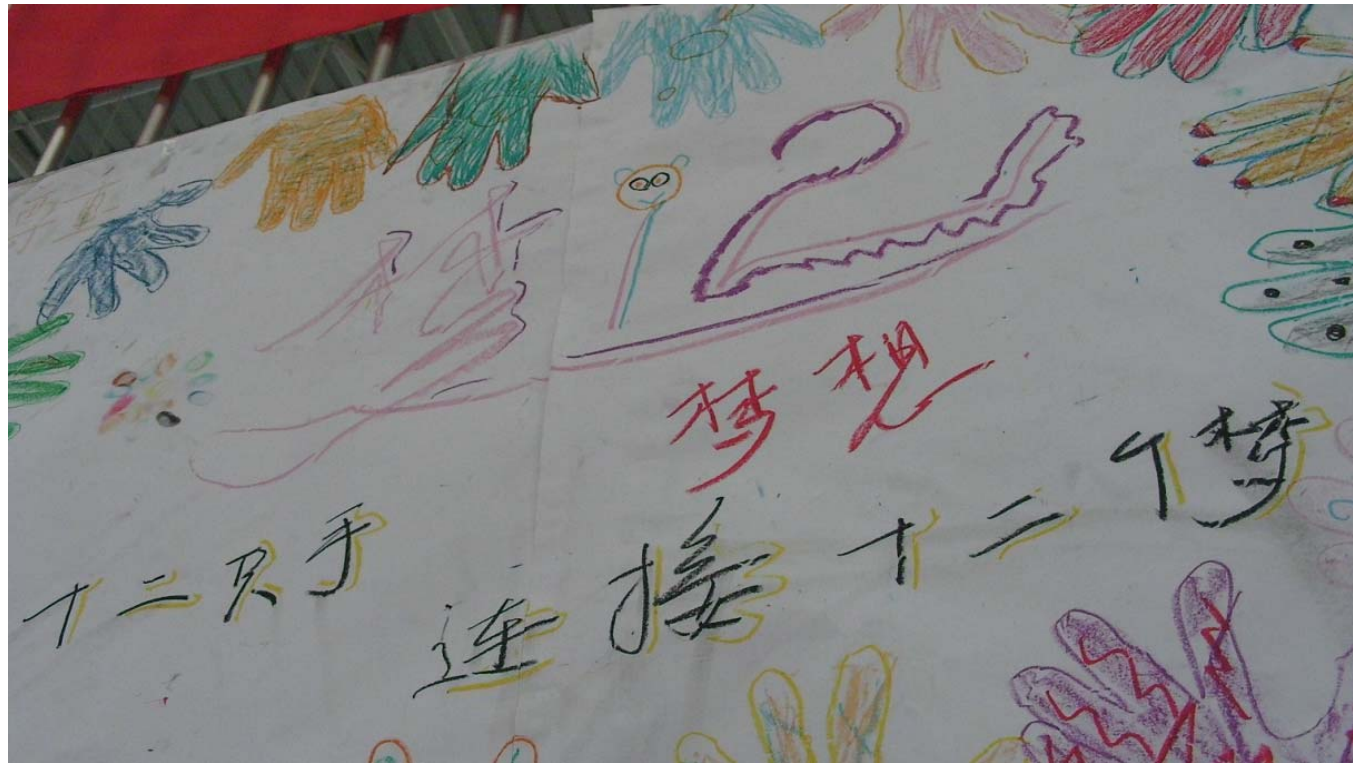 梦12
梦想
十二只手
连接十二个梦